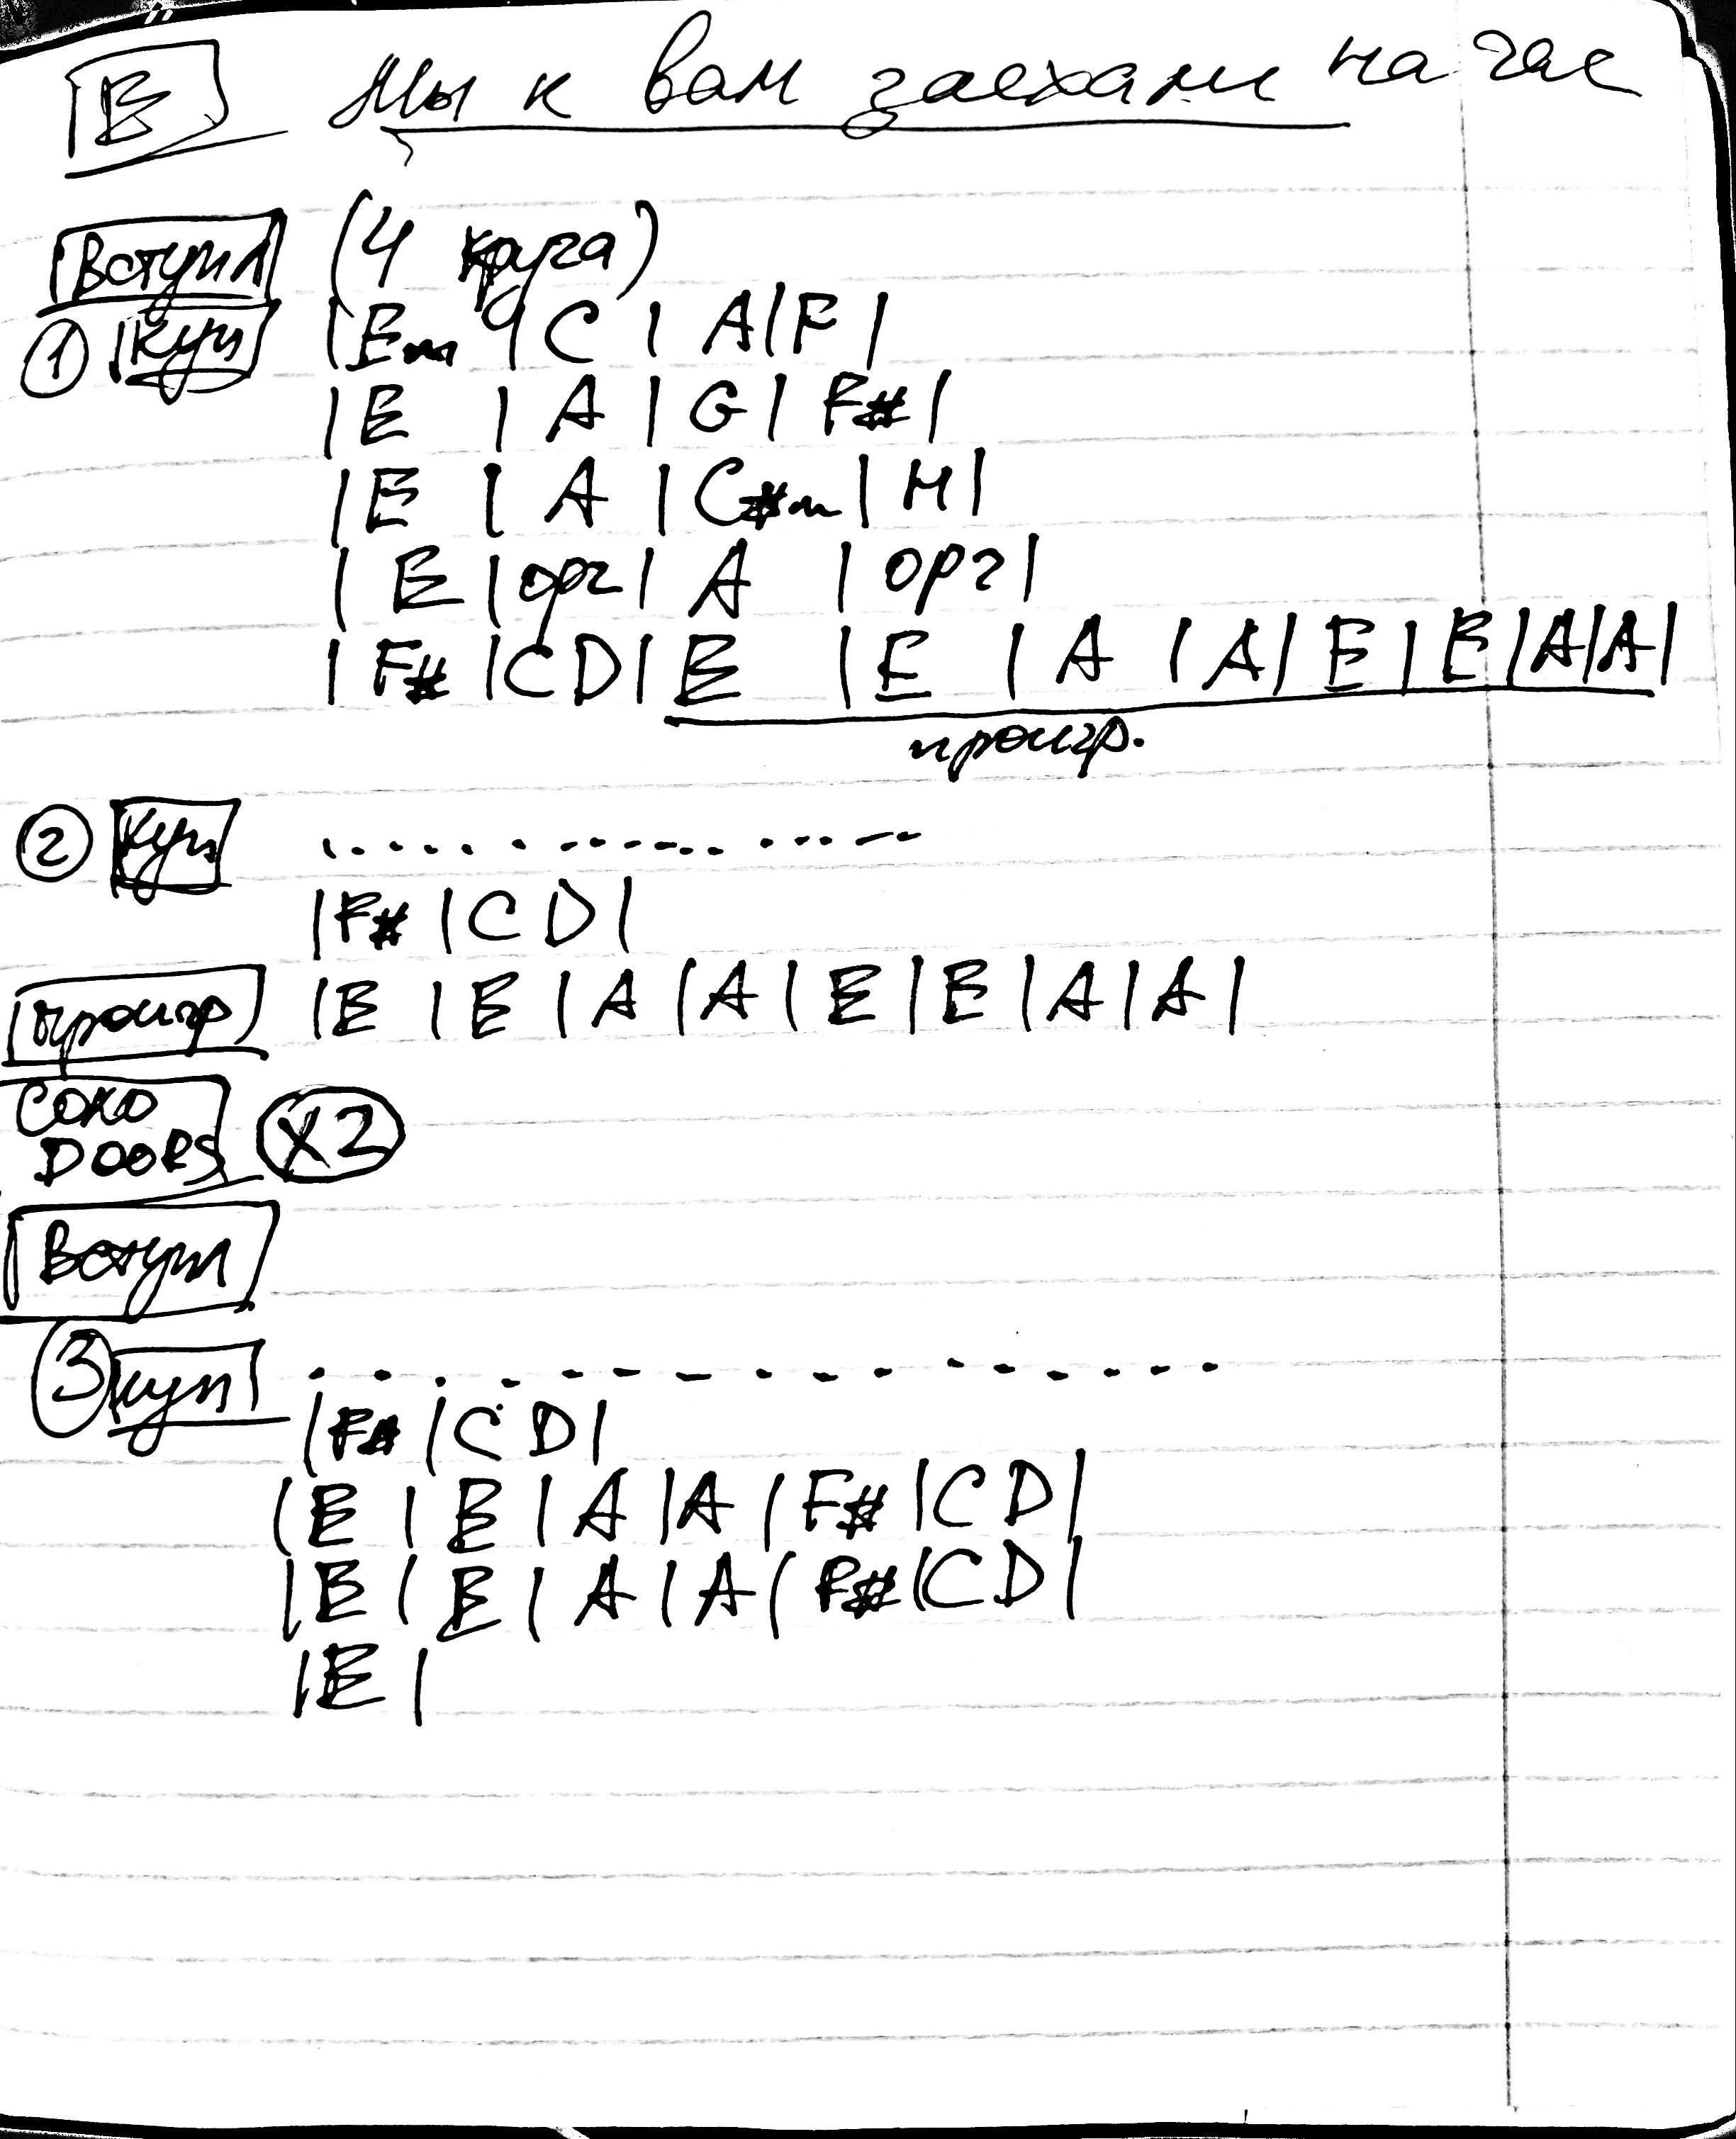 E Мы к вам заехали на час
Вступл (4 круга)
1 Куп |Em 9| C | A | F |
| E | A | G | F# |
| E | A | C#m | H |
| E | орг | A | орг |
| F# | C D | E | E | A | A | E | E | A | A |
проигр.
2 Куп ....................
| F# | C D |
Проигр | E | E | A | A | E | E | A | A |
СОЛО
DOORS X2
Вступл
3 куп ....................
| F# | C D |
| E | E | A | A | F# | C D |
| E | E | A | A | F# | C D |
| E |